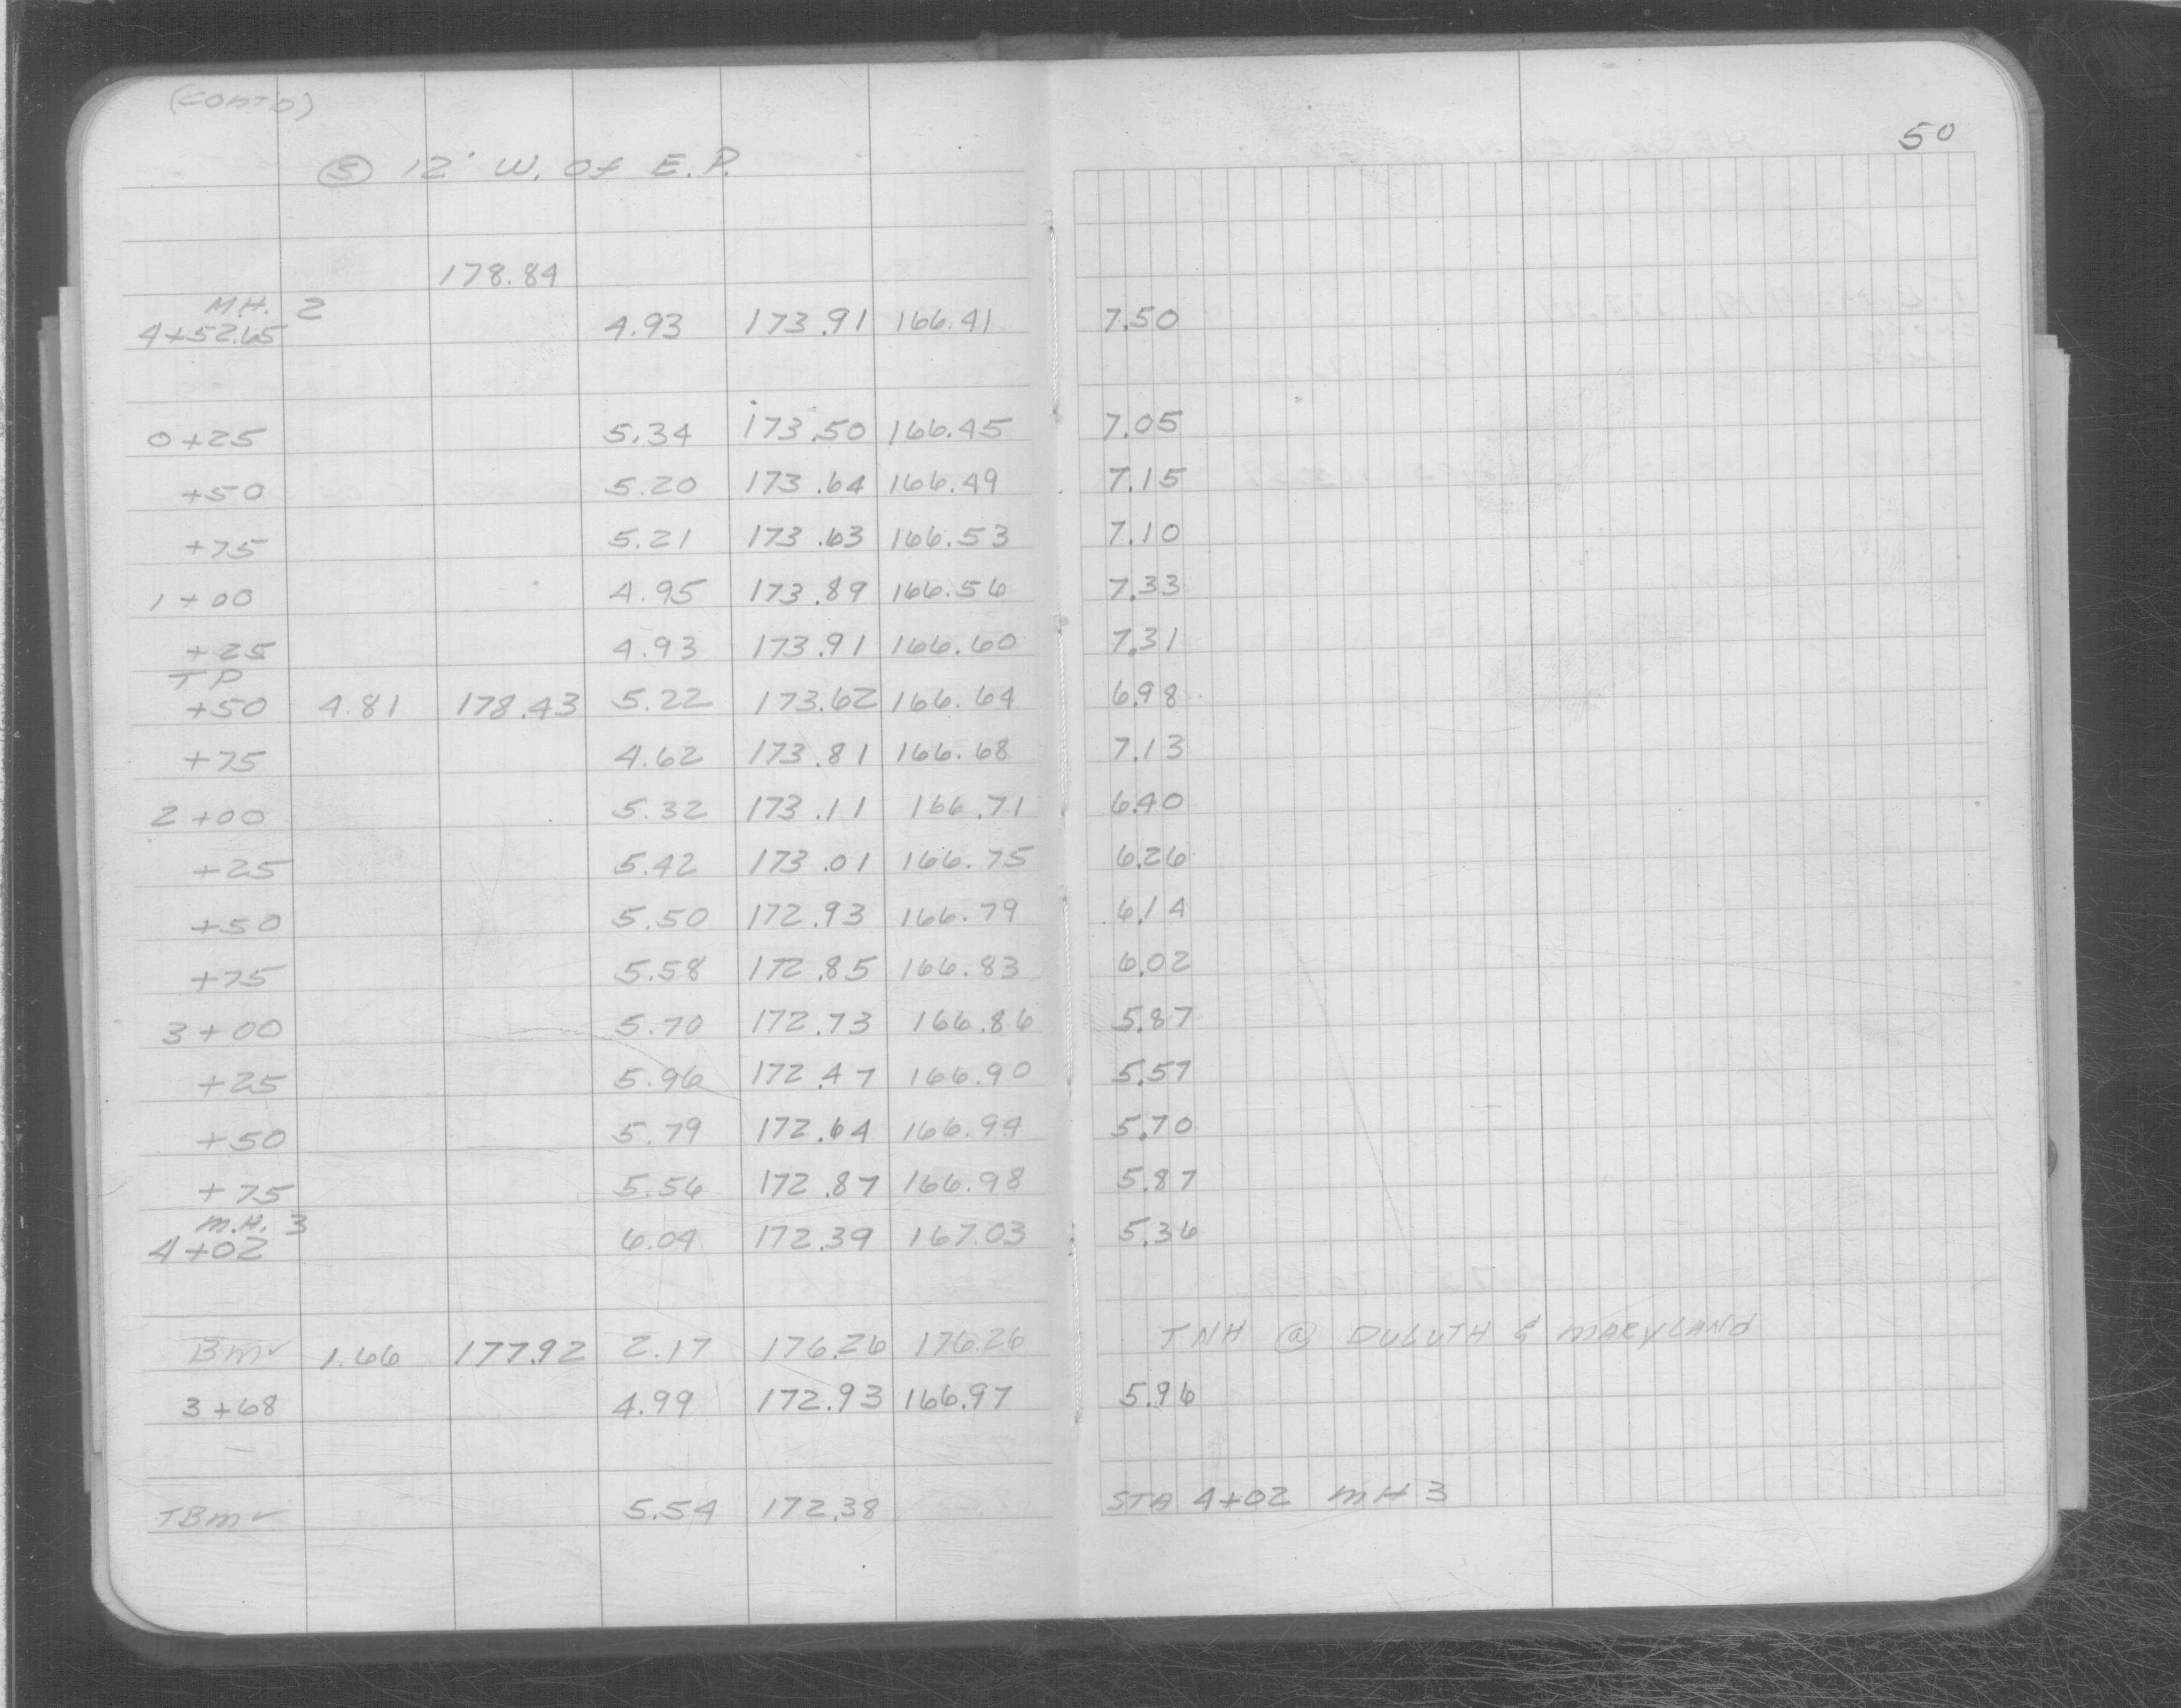 (CONT'D)
50
Ⓢ 12' W. Of E.P.
178.84
M.H. 2
4+52.65 4.93 173.91 166.41 7.50
0+25 5.34 173.50 166.45 7.05
+50 5.20 173.64 166.49 7.15
+75 5.21 173.63 166.53 7.10
1+00 4.95 173.89 166.56 7.33
+25 4.93 173.91 166.60 7.31
TP
+50 4.81 178.43 5.22 173.62 166.64 6.98
+75 4.62 173.81 166.68 7.13
2+00 5.32 173.11 166.71 6.40
+25 5.42 173.01 166.75 6.26
+50 5.50 172.93 166.79 6.14
+75 5.58 172.85 166.83 6.02
3+00 5.70 172.73 166.86 5.87
+25 5.96 172.47 166.90 5.57
+50 5.79 172.64 166.94 5.70
+75 5.56 172.87 166.98 5.87
M.H. 3
4+02 6.04 172.39 167.03 5.36
BM✓ 1.66 177.92 2.17 176.26 176.26 TNH @ DULUTH & MARYLAND
3+68 4.99 172.93 166.97 5.96
TBM✓ 5.54 172.38 STA 4+02 MH 3